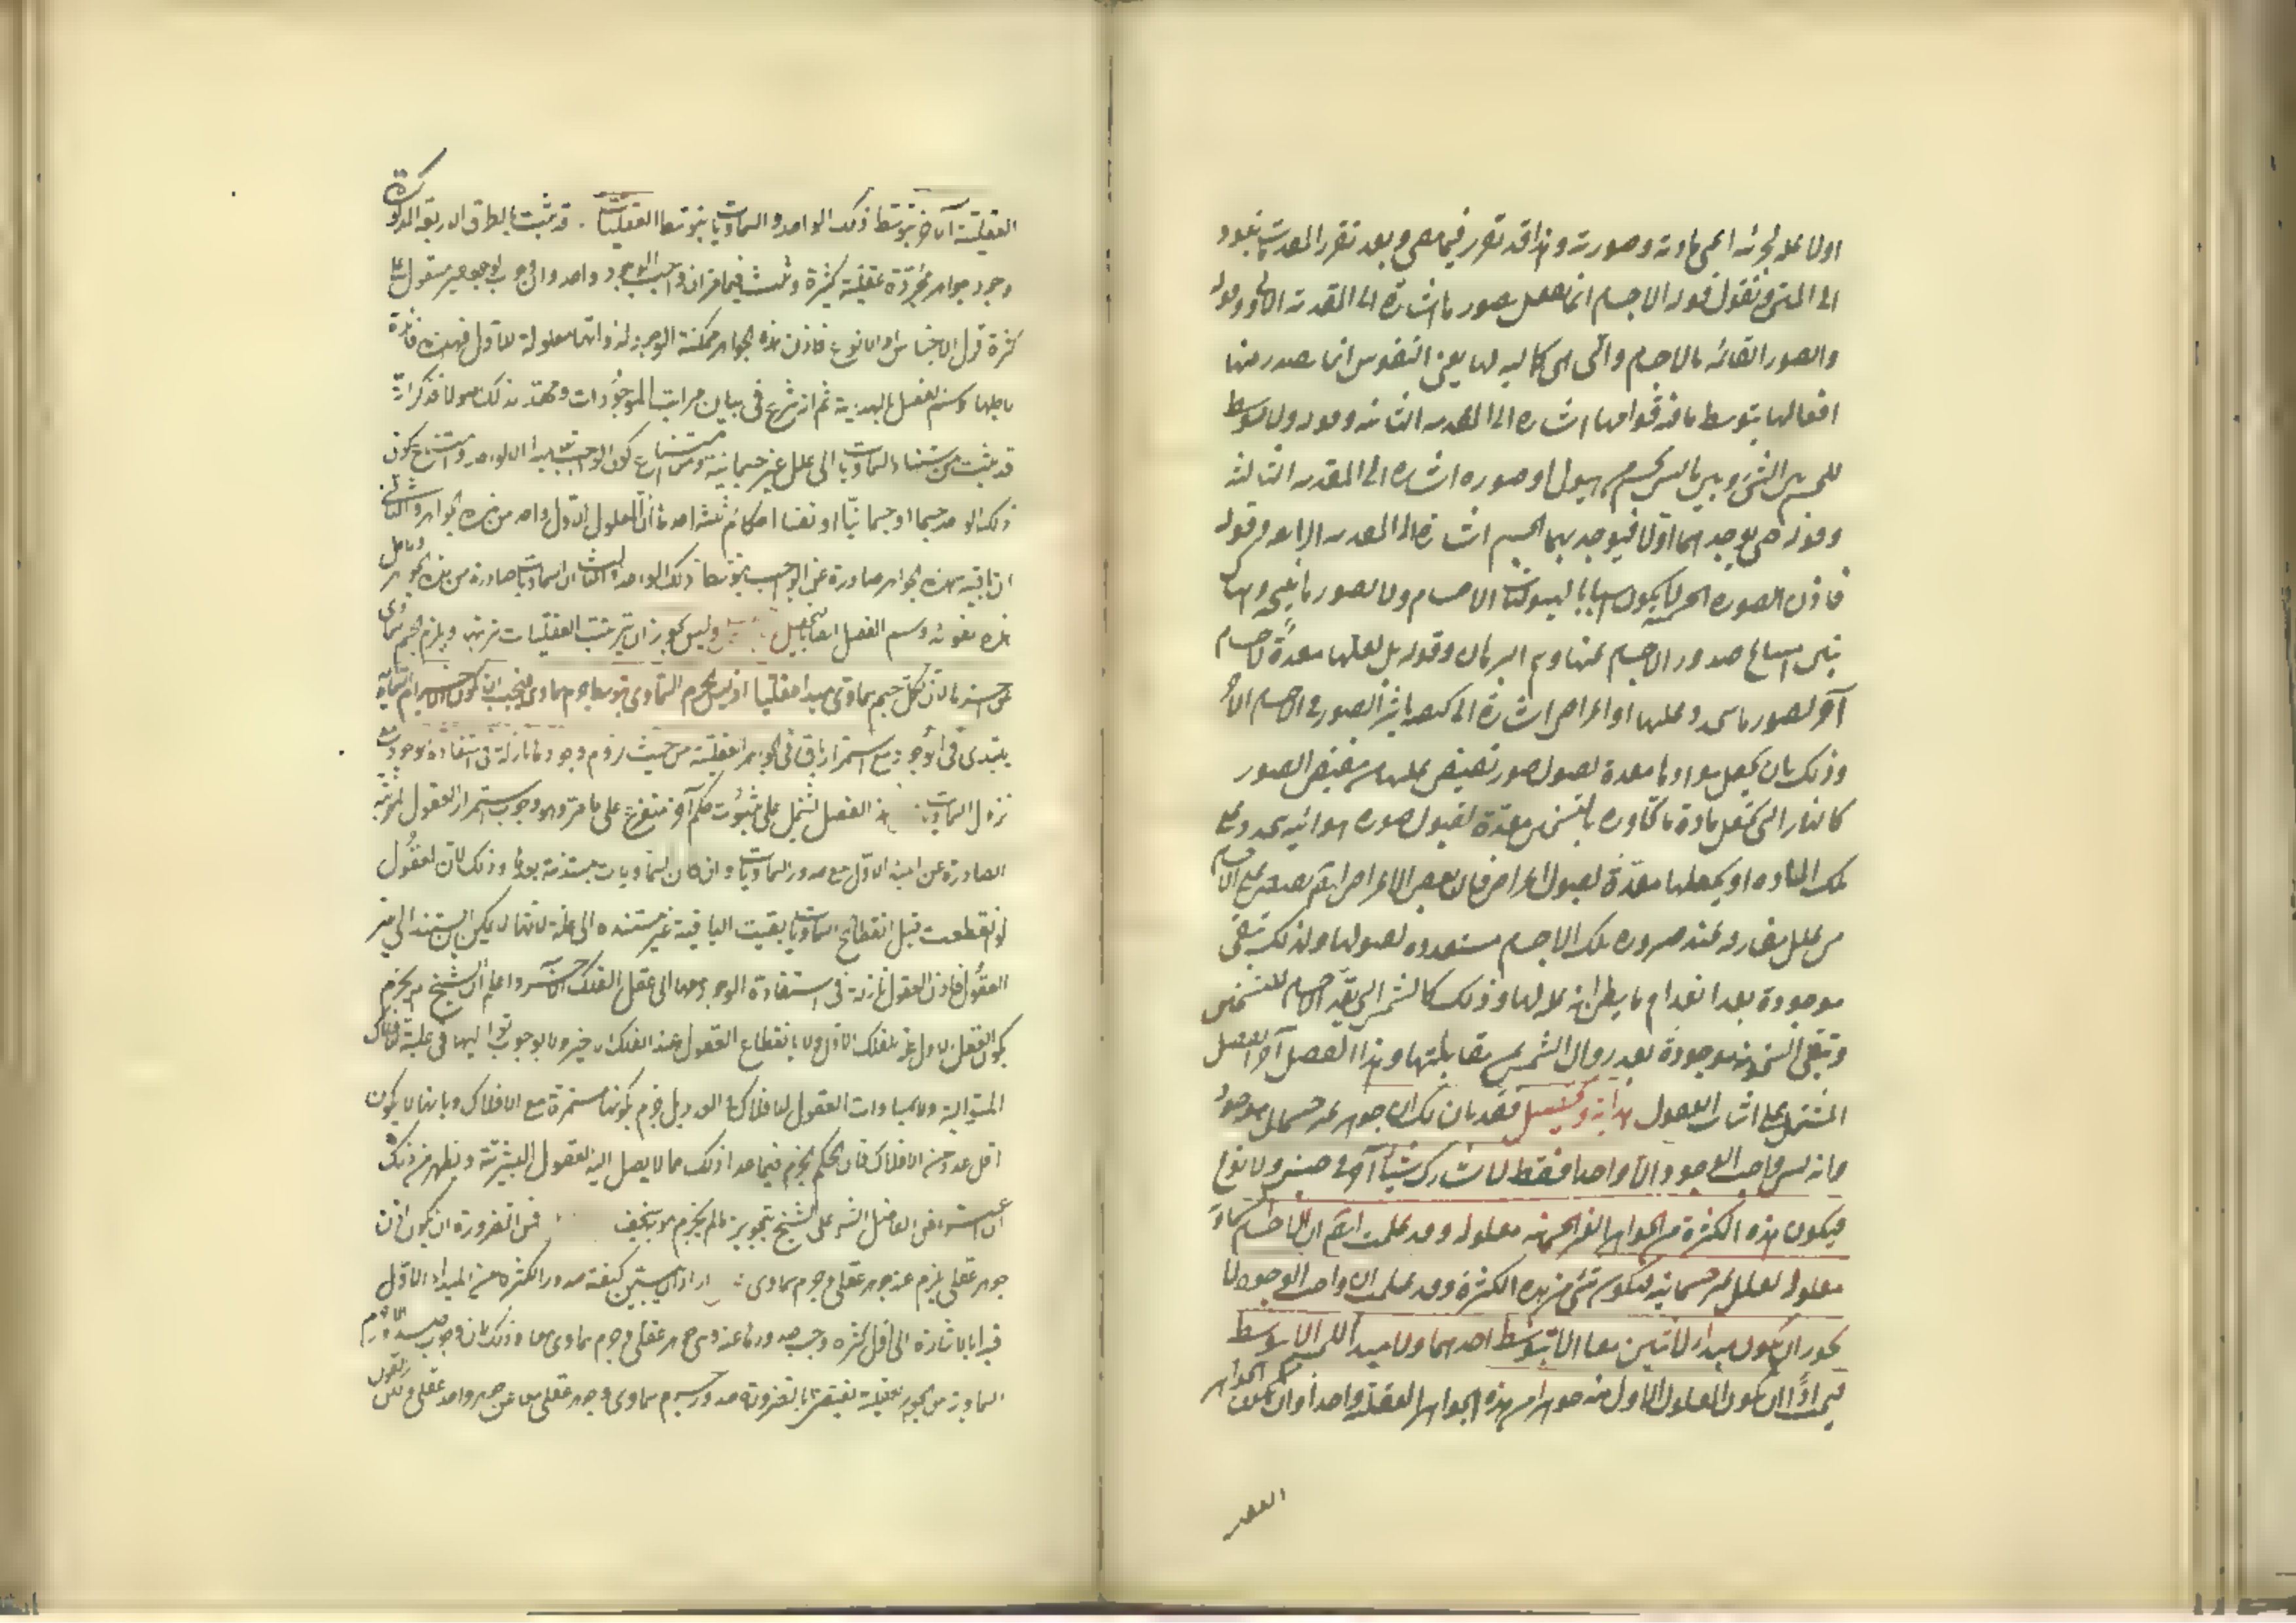 اولا علة لجزئه اعنى مادته وصورته وهذا قد تقرر فيما مضى وبعد تقرر المقدمات نعود
الى المتن ونقول قوله الاجسام انما تفعل بصورها اشارة الى المقدمة الاولى وقوله
والصور القائمة بالاجسام والتى هى كمالية لها يعنى النفوس انما تصدر عنها
افعالها بتوسط ما فيه قوامها اشارة الى المقدمة الثانية وقوله ولا توسط
للجسم بين الشئ وبين ما ليس بجسم من هيولى او صورة اشارة الى المقدمة الثالثة
وقوله حتى يوجدهما اولا فيوجد بهما الجسم اشارة الى المقدمة الرابعة وقوله
فاذن الصور الجسمية لا يكون اسبابا لهيوليات الاجسام ولا لصورها نتيجة وبها
تبين امتناع صدور الاجسام عنها وتم البرهان وقوله بل لعلها معدة لاجسام
آخر لصور ما يتجدد عليها او اعراض اشارة الى كيفية تاثير الصور فى الاجسام الاخر
وذلك بان يجعل موادها معدة لقبول صور تفيض عليها من مفيض الصور
كالنار التى تجعل مادة ما تجاوره بالتسخين معدة لقبول صورة هوائية يتجدد على
تلك المادة او يجعلها معدة لقبول اعراض فان بعض الاعراض ايضا يفيض على الاجسام
من علل مفارقة عند صيرورة تلك الاجسام مستعدة لقبولها ولذلك تبقى
موجودة بعد انعدام ما يظن انه علة لها وذلك كالشمس التى يعد الاجسام للتسخن
وتبقى السخونة موجودة بعد زوال الشمس عن مقابلتها وهذا الفصل آخر الفصول
المشتمل على اثبات العقول هداية وتحصيل فقد بان لك ان جواهر غير جسمانية موجودة
وانه ليس واجب الوجود الا واحدا فقط لا يشارك شيئا آخر فى جنس ولا نوع
فيكون هذه الكثرة من الجواهر الغير الجسمانية معلولة وقد علمت ايضا ان الاجسام السماوية
معلولة لعلل غير جسمانية فيكون شئ من هذه الكثرة وقد علمت ان واجب الوجود لا
يجوز ان يكون مبدء لاثنين معا الا بتوسط احدهما ولا مبدء للجسم الا بتوسط
فيجب اذا ان يكون المعلول الاول منه جوهرا من هذه الجواهر العقلية واحدا وان يكون الجواهر
العقلـ
العقلية الآخر بتوسط ذلك الواحد والسماويات بتوسط العقليات قد ثبت بالطرق الاربعة المذكورة
وجود جواهر مجردة عقلية كثيرة وثبت فيما مر ان واجب الوجود واحد وان وجوب الوجود غير مقول على
كثرة قول الاجناس او الانواع فاذن هذه الجواهر ممكنة الوجود لذواتها معلولة للاول فهذه فائدة
باجلها وسم الفصل بالهداية ثم انه شرع فى بيان مراتب الموجودات ومهد لذلك اصولا فذكر انه
قد ثبت من استناد السماويات الى علل غير جسمانية ومن امتناع كون الواجب مبدءا الا لواحد وامتناع كون
ذلك الواحد جسما او جسمانيا او نفسا احكام ثلثة احدها ان المعلول الاول واحد من هذه الجواهر والثانى
ان باقية هذه الجواهر صادرة عن الواجب بتوسط ذلك الواحد والثالث ان السماويات صادرة من هذه الجواهر
وسم الفصل ايضا بالتحصيل وليس يجوز ان يترتب العقليات ترتبها ويلزم الجسم السماوى
عن آخرها لان لكل جسم سماوى مبدءا عقليا اذ ليس الجرم السماوى بتوسط جرم سماوى فيجب ان يكون الاجرام السماوية
يبتدى فى الوجود مع استمرار باق فى الجواهر العقلية من حيث لزوم وجودها نازلة فى استفادة الوجود مع
نزول السماويات هذا الفصل مشتمل على ثبوت حكم آخر متفرع على ما مر وهو وجوب استمرار العقول المترتبة
الصادرة عن المبدء الاول مع صدور السماويات وان كان السماويات مبتدئة بعدها وذلك لان العقول
لو انقطعت قبل انقطاع السماويات بقيت الباقية غير مستندة الى علة لانها لا يمكن ان يستند الى غير
العقول فاذن العقول نازلة فى استفادة الوجود معها الى عقل الفلك الآخر واعلم ان الشيخ لم يجزم
بكون العقل الاول علة للفلك الاول ولا بانقطاع العقول عند الفلك الاخير ولا بوجوب تواليها فى علية الافلاك
المتوالية ولا بمساوات العقول للافلاك فى العدد بل جزم بكونها مستمرة مع الافلاك وبانها لا يكون
اقل عددا من الافلاك فان الحكم الجزم فيما عدا ذلك مما لا يصل اليه العقول البشرية ويظهر من ذلك
ان اعتراض الفاضل الشارح على الشيخ بتجويز ما لم يجزم به سخيف فمن الضرورة ان يكون اذن
جوهر عقلى يلزم عنه جوهر عقلى وجرم سماوى اراد ان يبين كيفية صدور الكثرة عن المبدء الاول
فبدا بالاشارة الى اول كثرة وجب صدورها عنه وهى جوهر عقلى وجرم سماوى معا وذلك لان وجوب صدور الاجرام
السماوية من الجواهر العقلية يقتضى بالضرورة صدور جرم سماوى وجوهر عقلى معا عن جوهر واحد عقلى